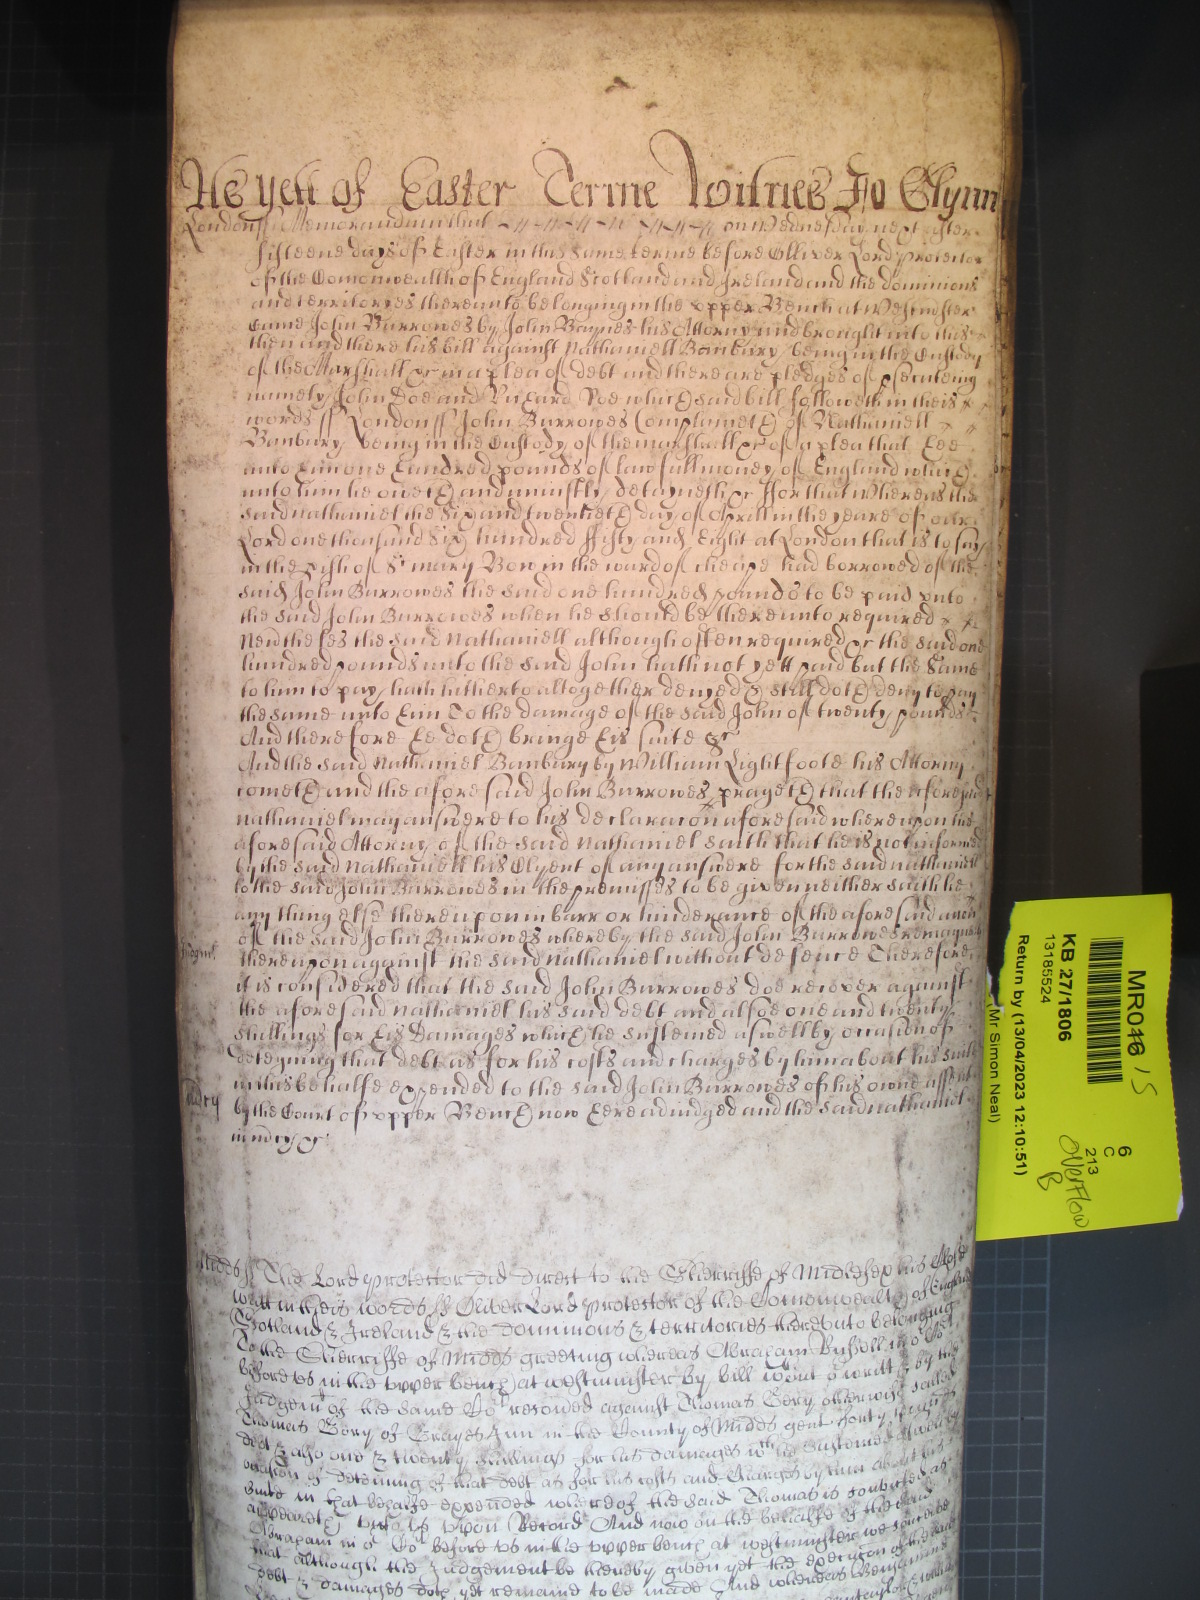 As yett of Easter Terme Witnes Jo Glynn
London ss Memorandum that on Wednesday next after
fifteene dayes of Easter in this same terme before Olliver Lord protector
of the Comonwealth of England Scotland and Ireland and the dominions
and territoryes thereunto belonging in the upper Bench at Westminster
Came John Burrowes by John Baynes his Attorny and brought into this
then and there his bill against Nathaniell Banbury being in the Custody
of the Marshall &c in a plea of debt and there are pledges of psecuteing
namely John Doe and Richard Roe which said bill followeth in theis
words ss London ss John Burrowes Complayneth of Nathaniell
Banbury being in the Custody of the marshall &c of a plea that hee
unto him one hundred pounds of lawfull money of England which
unto him he oweth and uniustly detayneth &c ffor that Whereas the
said nathaniel the Six and twentieth day of Aprill in the yeare of our
Lord one thousand Six hundred ffifty and Eight at London that is to say
in the pish of St mary Bow in the ward of cheape had borrowed of the
said John Burrowes the said one hundred pounds to be paid unto
the said John Burrowes when he should be thereunto required
Neverthelesse the said Nathaniell although often required &c the said one
hundred pounds unto the said John hath not yett paid but the Same
to him to pay hath hitherto altogether denyed & still doth deny to pay
the same unto him To the damage of the said John of twenty pounds
And therefore he doth bringe his suite &c
And the said Nathaniel Banbury by William Lightfoote his Attorny
cometh and the aforesaid John Burrowes prayeth that the aforesaid
nathaniel may answere to his declaracon aforesaid whereupon the
aforesaid Attorny of the said Nathaniel saith that he is not informed
by the said Nathaniell his Clyent of any answere for the said nathaniell
to the said John Burrowes in the premisses to be given neither saith he
any thing else thereupon in barr or hinderance of the aforesaid
of the said John Burrowes whereby the said John Burrowes remayneth
Judgmt
thereupon against the said Nathaniel without defence Therefore
it is considered that the said John Burrowes doe recover against
the aforesaid nathaniel his said debt and alsoe one and twenty
shillings for his Damages which he susteined aswell by occasion of
deteyning that debt as for his costs and charges by him about his suite
in this behalfe expended to the said John Burrowes of his owne assent
mercy
by the Court of upper Bench now here adiudged and the said nathaniel
in mercy &c
Midds ss The Lord protector did direct to the Sherriffe of Midlesex his
writt in theis words ss Oliver Lord protector of the Comonwealth of England
Scotland & Ireland & the dominions & territories thereunto belonging
To the Sherriffe of Midds greeting whereas Abraham
before us in the upper bench at westminster by bill
Judgemt of the same Cort recovred against Thomas Cory otherwise called
Thomas Cory of Grayes Inn in the County of Midds gent forty
debt & also one & twenty shillings for his damages wch he susteined aswell by
occasion of deteining of that debt as for his costs and charges by him about his
suite in that behalfe expended whereof the said Thomas is convicted as
appeareth unto us upon Record And now on the behalfe of the said
Abraham in or Cort before us in the upper bench at westminster we
that although the Judgement be thereby given yet the execucon of the
debt & damages doth yet remaine to be made And whereas Beniamin
MR046 15
KB 27/1806
13185524
Return by (13/04/2023 12:10:51)
(Mr Simon Neal)
6
C
213
Overflow
B